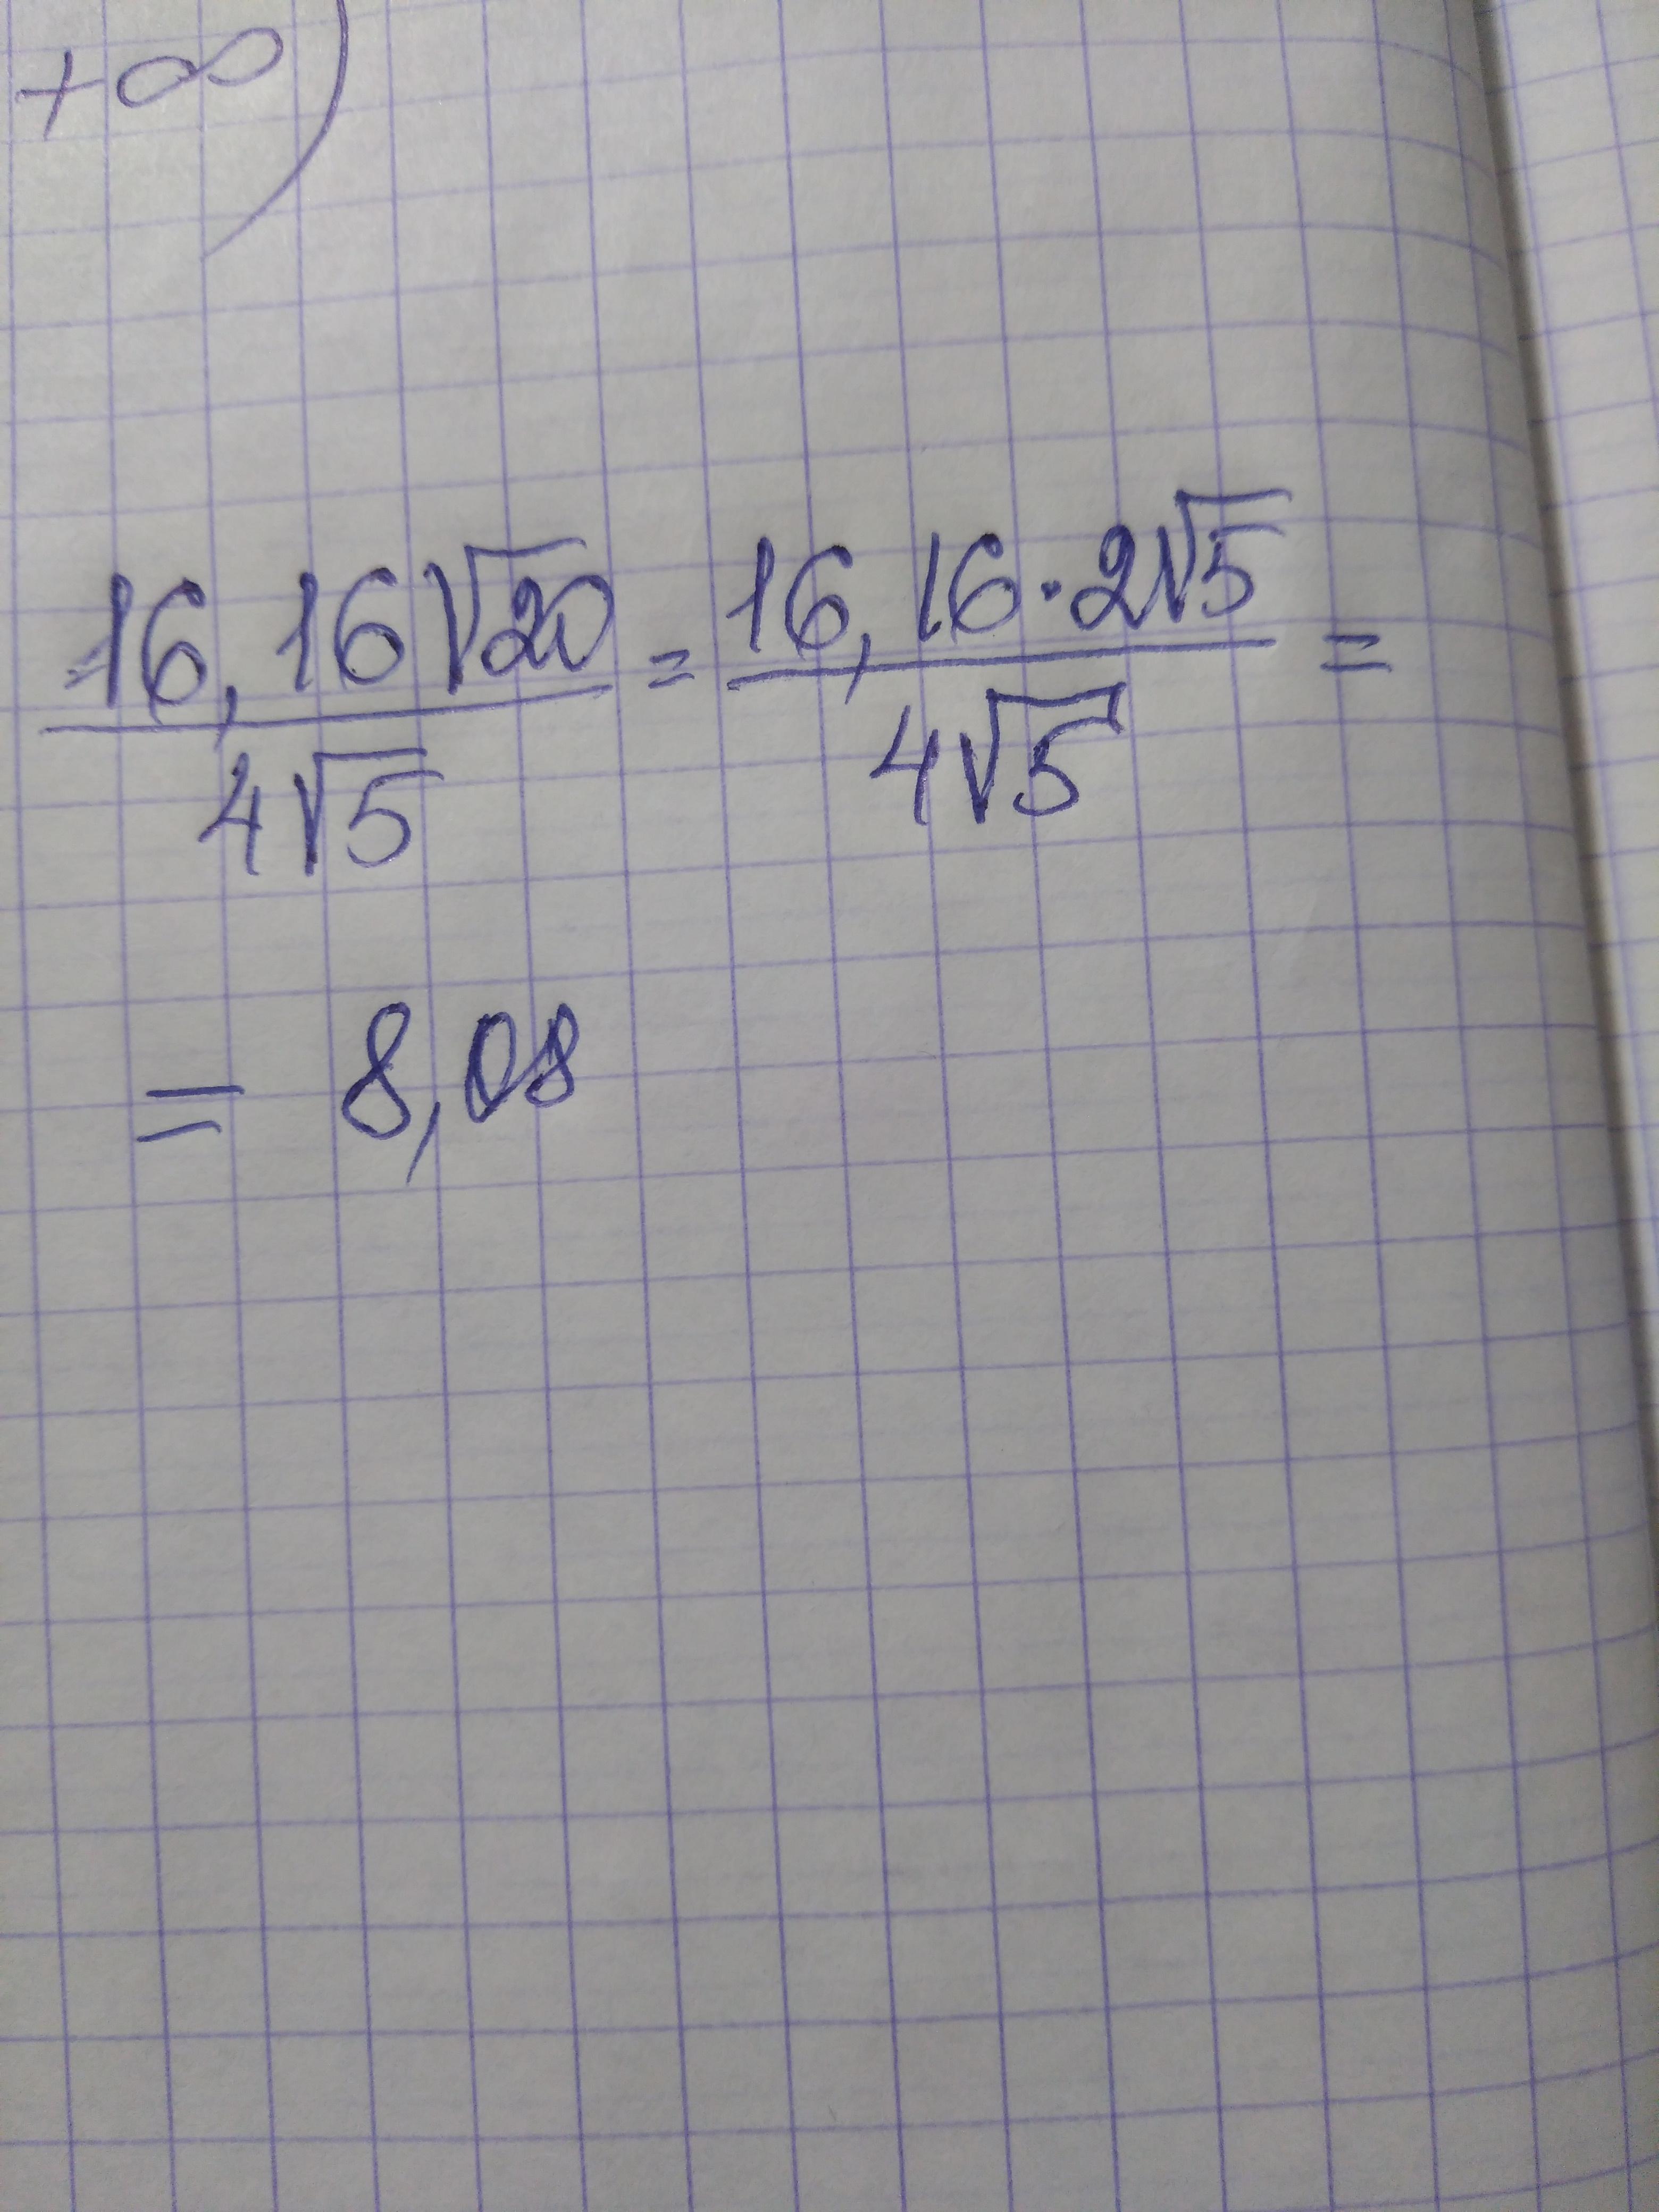 +∞)
16,16√20 / 4√5 = 16,16·2√5 / 4√5 =
= 8,08